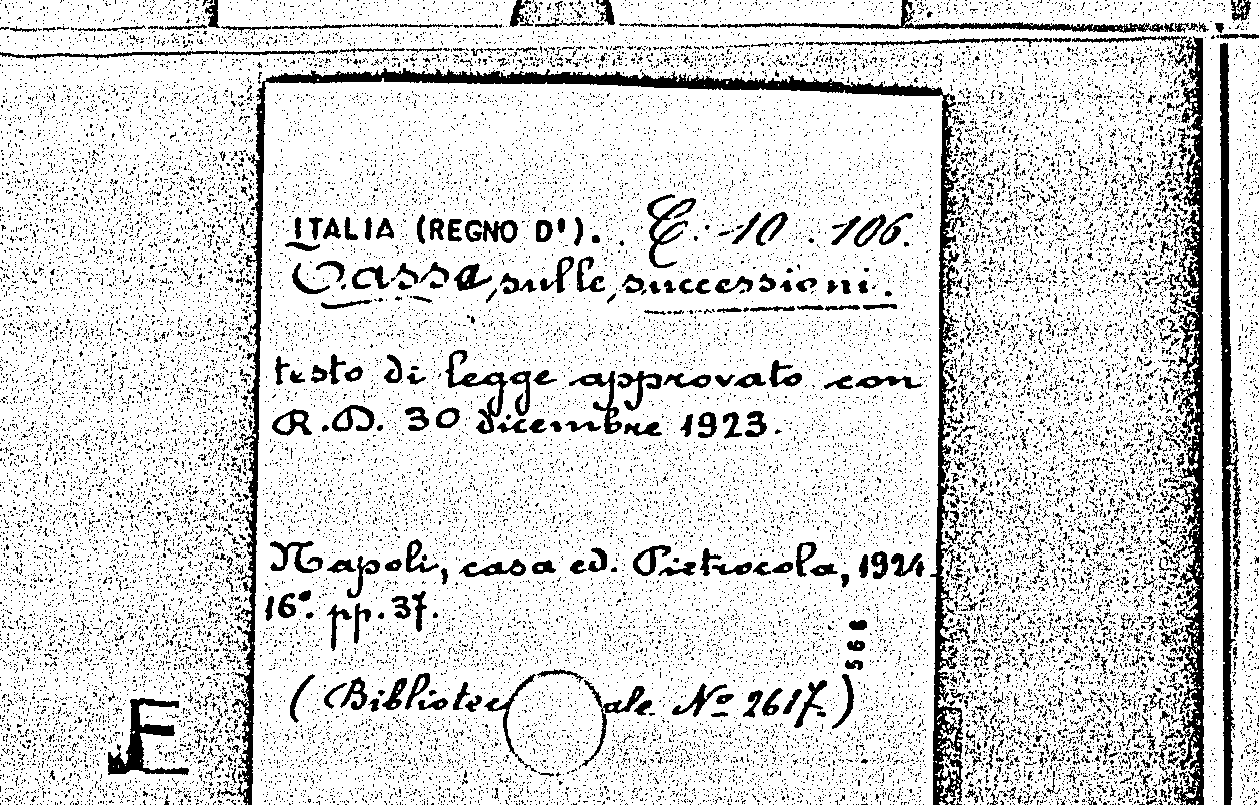 ITALIA (REGNO D'). . C. 10 . 106.
Tassa sulle successioni.
testo di legge approvato con
R.D. 30 dicembre 1923.
Napoli, casa ed. Pietrocola, 1924.
16° pp. 37.
568
(Bibliotec ale Nº 2617.)
E